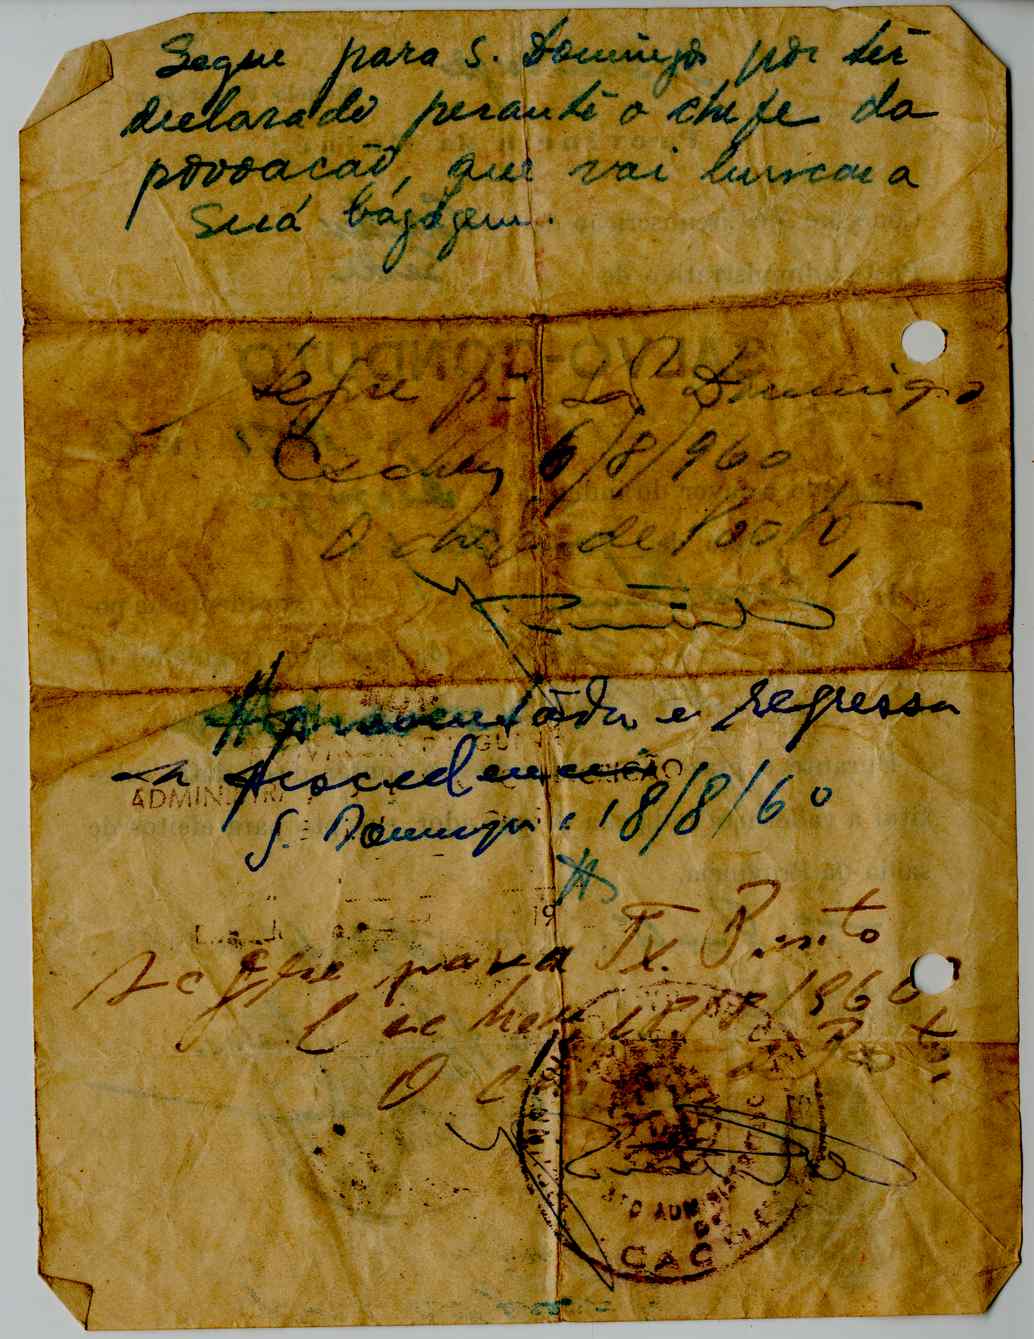 Segue para S. Domingos por ter
declarado perante o chefe da
povoação, que vai buscar a
Suá bagágem.
Segue pª S. Domingos
Cacheu 6/8/960
O chefe de Posto,
Apresentado e regressa
a procedencia
ADMINISTRA
S. Domingos, 18/8/60
19
Segue para Tx. Pinto
Cacheu /960
O c de Posto
STO ADMINIST
DE
CACHEU